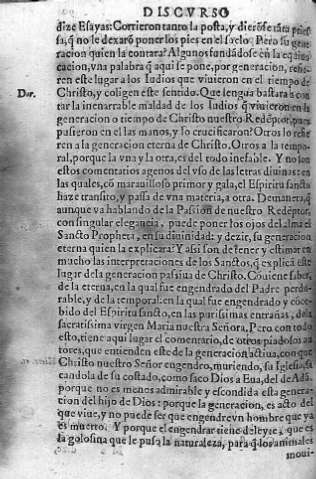 DISCVRSO
dize Esayas: Corrieron tanto la posta, y dierõse tãta priessa,
q̃ no le dexarõ poner los pies en el suelo. Pero su generacion
quien la contara? Algunos fundãdose en la equiuocacion,
vna palabra q̃ aqui se pone, por generacion, refieren
este lugar a los Iudios que viuieron en el tiempo de
Dor.
Christo, y coligen este sentido. Que lengua bastara a contar
la inenarrable maldad de los Iudios q̃ viuieron en la
generacion o tiempo de Christo nuestro Redẽptor, pues
pusieron en el las manos, y lo crucificaron? Otros lo refieren
a la generacion eterna de Christo. Otros a la temporal,
porque la vna y la otra, es del todo inefable. Y no son
estos comentarios agenos del vso de las letras diuinas: en
las quales, cõ marauilloso primor y gala, el Espiritu sancto
haze transito, y passa de vna materia, a otra. Demanera, q̃
aunque va hablando de la Passion de nuestro Redẽptor,
con singular elegancia, puede poner los ojos del alma el
Sancto Propheta, en su diuinidad: y dezir, su generacion
eterna quien la explicara? Y assi son de tener y estimar en
mucho las interpretaciones de los Sanctos, q̃ explicã este
lugar de la generacion passiua de Christo. Cõuiene saber,
de la eterna, en la qual fue engendrado del Padre perdurable,
y de la temporal: en la qual fue engendrado y concebido
del Espiritu sancto, en las purissimas entrañas, de la
sacratissima virgen Maria nuestra Señora. Pero con todo
esto, tiene aqui lugar el comentario, de otros piadosos autores,
que entienden este de la generacion actiua, con que
Christo nuestro Señor engendro, muriendo, su Iglesia, sacandola
de su costado, como saco Dios a Eua, del de Adã.
porque no es menos admirable y escondida esta generacion
del hijo de Dios: porque la generacion, es acto del
que viue, y no puede ser que engendre vn hombre que ya
es muerto. Y porque el engendrar tiene deleyte, que es
la golosina que le puso la naturaleza, para q̃ los animales
moui-